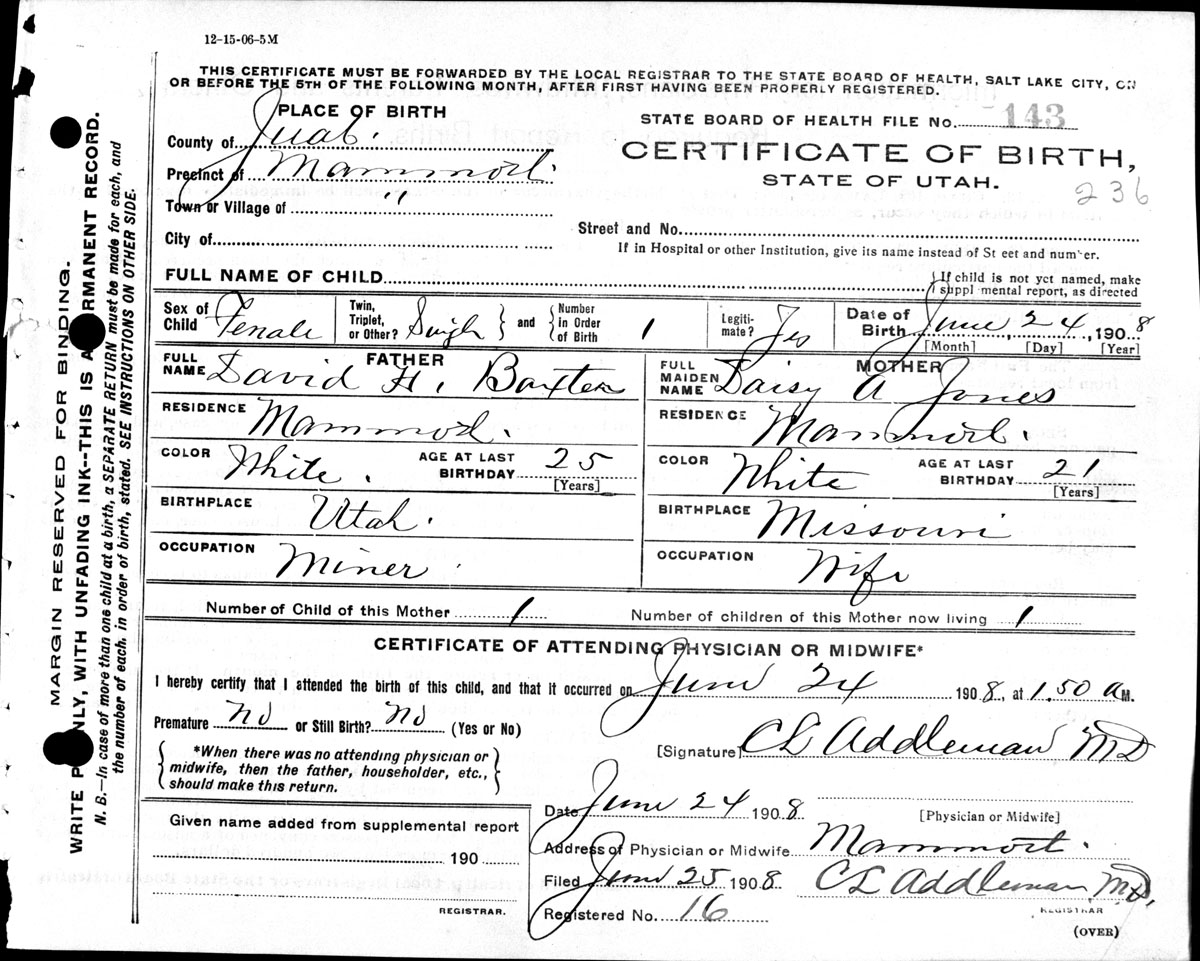 12-15-06-5M
THIS CERTIFICATE MUST BE FORWARDED BY THE LOCAL REGISTRAR TO THE STATE BOARD OF HEALTH, SALT LAKE CITY, ON
OR BEFORE THE 5TH OF THE FOLLOWING MONTH, AFTER FIRST HAVING BEEN PROPERLY REGISTERED.
PLACE OF BIRTH
STATE BOARD OF HEALTH FILE No. 143
County of Juab.
CERTIFICATE OF BIRTH,
Precinct of Mammoth.
STATE OF UTAH.
236
Town or Village of "
Street and No.
City of
If in Hospital or other Institution, give its name instead of St eet and number.
FULL NAME OF CHILD
If child is not yet named, make
suppl mental report, as directed
Sex of Child Female
Twin, Triplet, or Other? Single and Number in Order of Birth 1
Legitimate? Yes
Date of Birth June 24, 1908
[Month] [Day] [Year]
FATHER
FULL NAME David H. Baxter
MOTHER
FULL MAIDEN NAME Daisy A Jones
RESIDENCE Mammoth.
RESIDENCE Mammoth.
COLOR White. AGE AT LAST BIRTHDAY 25 [Years]
COLOR White AGE AT LAST BIRTHDAY 21 [Years]
BIRTHPLACE Utah.
BIRTHPLACE Missouri
OCCUPATION Miner
OCCUPATION Wife
Number of Child of this Mother 1
Number of children of this Mother now living 1
CERTIFICATE OF ATTENDING PHYSICIAN OR MIDWIFE*
I hereby certify that I attended the birth of this child, and that it occurred on June 24 1908, at 1.50 a M.
Premature No or Still Birth? No (Yes or No)
*When there was no attending physician or
midwife, then the father, householder, etc.,
should make this return.
[Signature] CL Addleman MD
Date June 24 1908
[Physician or Midwife]
Given name added from supplemental report
190
REGISTRAR.
Address of Physician or Midwife Mammoth.
Filed June 25 1908 CL Addleman M.D.
REGISTRAR
Registered No. 16
(OVER)
MARGIN RESERVED FOR BINDING.
WRITE P NLY, WITH UNFADING INK--THIS IS A RMANENT RECORD.
N. B.—In case of more than one child at a birth, a SEPARATE RETURN must be made for each, and
the number of each, in order of birth, stated. SEE INSTRUCTIONS ON OTHER SIDE.